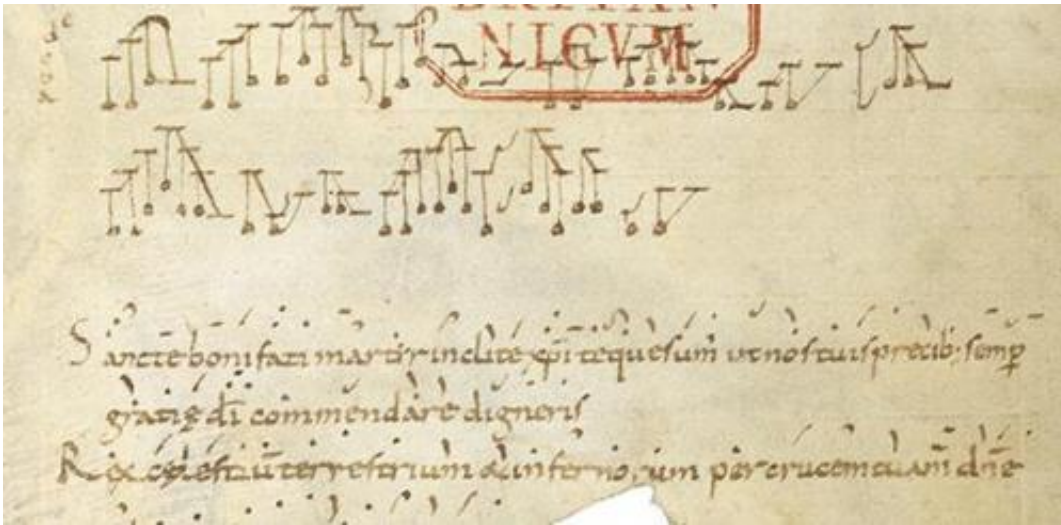 BRITAN
NICVM
Sancte bonifati martyr inclite xp̄i te quesum̄ ut nos tuis precib; semꝑ
gratię dī commendare digneris
Rex cęlestiū terrestrium & infernorum per crucem tuam dn̄e